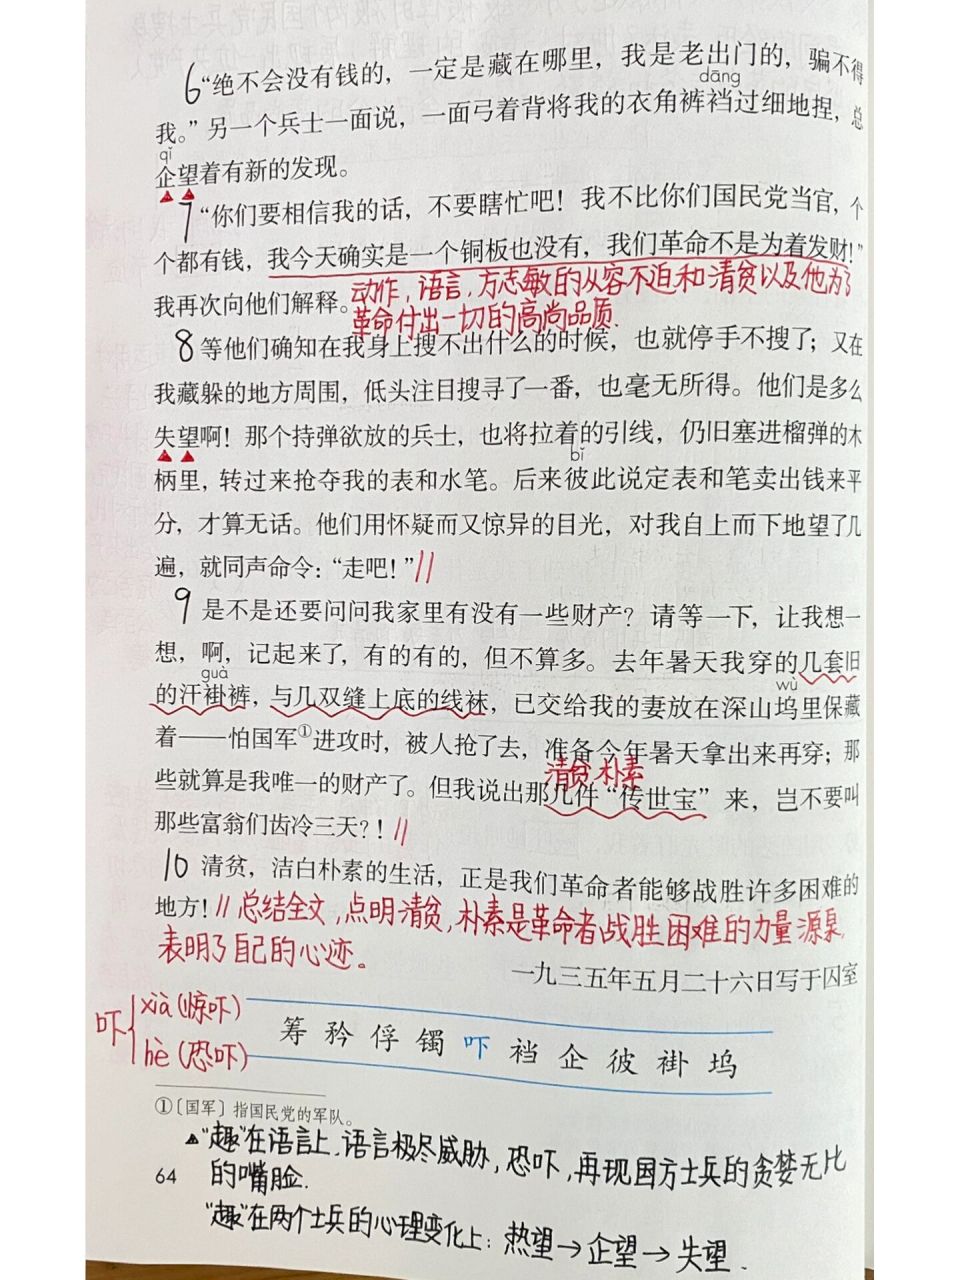 6“绝不会没有钱的，一定是藏在哪里，我是老出门的，骗不得
dāng
我。”另一个兵士一面说，一面弓着背将我的衣角裤裆过细地捏，总
qǐ
企望着有新的发现。
7“你们要相信我的话，不要瞎忙吧！我不比你们国民党当官，个
个都有钱，我今天确实是一个铜板也没有，我们革命不是为着发财！”
我再次向他们解释。
动作，语言，方志敏的从容不迫和清贫以及他为了
革命付出一切的高尚品质.
8等他们确知在我身上搜不出什么的时候，也就停手不搜了；又在
我藏躲的地方周围，低头注目搜寻了一番，也毫无所得。他们是多么
失望啊！那个持弹欲放的兵士，也将拉着的引线，仍旧塞进榴弹的木
bǐ
柄里，转过来抢夺我的表和水笔。后来彼此说定表和笔卖出钱来平
分，才算无话。他们用怀疑而又惊异的目光，对我自上而下地望了几
遍，就同声命令：“走吧！”//
9是不是还要问问我家里有没有一些财产？请等一下，让我想一
想，啊，记起来了，有的有的，但不算多。去年暑天我穿的几套旧
guà wù
的汗褂裤，与几双缝上底的线袜，已交给我的妻放在深山坞里保藏
着——怕国军①进攻时，被人抢了去，准备今年暑天拿出来再穿；那
清贫、朴素
些就算是我唯一的财产了。但我说出那几件“传世宝”来，岂不要叫
那些富翁们齿冷三天？！//
10清贫，洁白朴素的生活，正是我们革命者能够战胜许多困难的
地方！//总结全文，点明清贫，朴素是革命者战胜困难的力量源泉，
表明了自己的心迹。
一九三五年五月二十六日写于囚室
吓{xià(惊吓)
hè(恐吓)
筹 矜 俘 镯 吓 裆 企 彼 褂 坞
①〔国军〕指国民党的军队。
▲“趣”在语言上，语言极尽威胁，恐吓，再现国方士兵的贪婪无比
64
的嘴脸.
“趣”在两个士兵的心理变化上：热望→企望→失望.